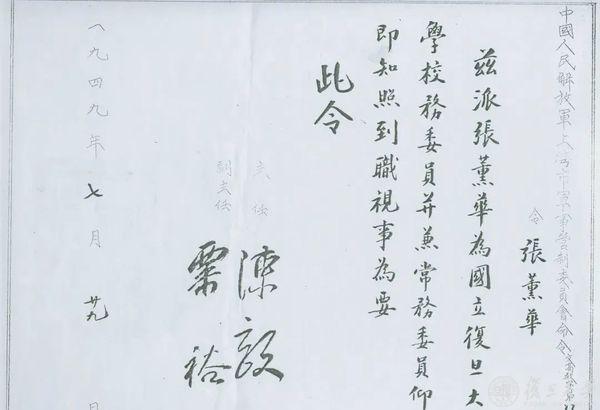 中國人民解放軍上海市軍事管制委員會命令
令 張薰華
茲派張薰華為國立復旦大
學校務委員并兼常務委員仰
即知照到職視事為要
此令
主任 陳毅
副主任 粟裕
一九四九年七月廿九